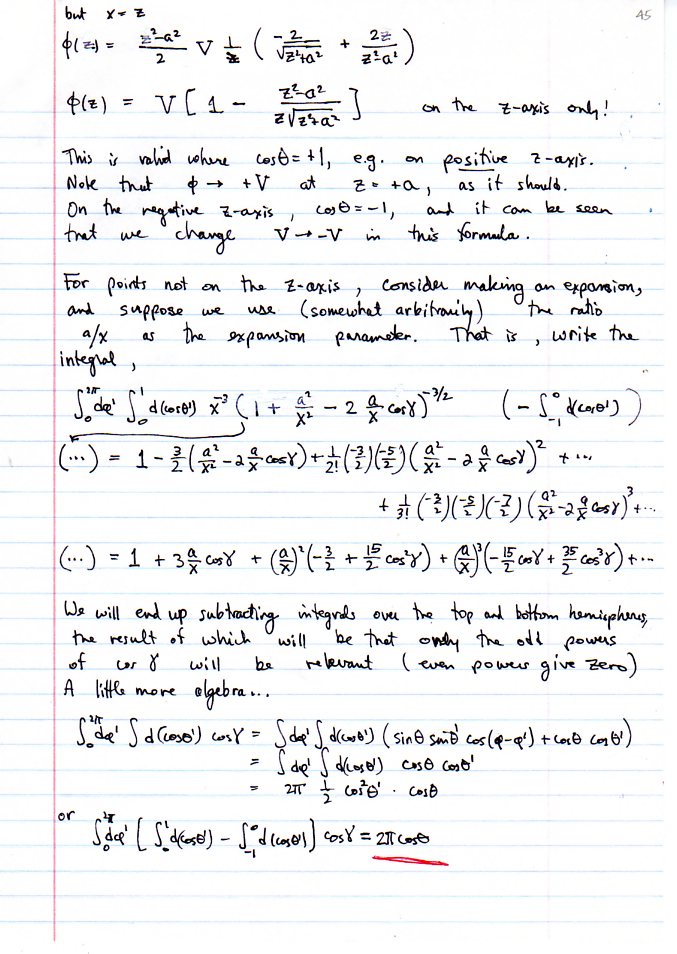 45
but x = z
ϕ(z) = (z²-a²)/2 V 1/z ( -2/√(z²+a²) + 2z/(z²-a²) )
ϕ(z) = V [ 1 - (z²-a²)/(z√(z²+a²)) ] on the z-axis only!
This is valid where cosθ = +1, e.g. on positive z-axis.
Note that ϕ → +V at z = +a, as it should.
On the negative z-axis, cosθ = -1, and it can be seen
that we change V → -V in this formula.
For points not on the z-axis, consider making an expansion,
and suppose we use (somewhat arbitrarily) the ratio
a/x as the expansion parameter. That is, write the
integral,
∫₀^2π dφ' ∫₀^1 d(cosθ') x⁻³ ( 1 + a²/x² - 2 a/x cosγ )^-3/2 ( - ∫₋₁^0 d(cosθ') )
(...) = 1 - 3/2 ( a²/x² - 2 a/x cosγ ) + 1/2! (-3/2)(-5/2) ( a²/x² - 2 a/x cosγ )² + ...
+ 1/3! (-3/2)(-5/2)(-7/2) ( a²/x² - 2 a/x cosγ )³ + ...
(...) = 1 + 3 a/x cosγ + (a/x)² (-3/2 + 15/2 cos²γ) + (a/x)³ (-15/2 cosγ + 35/2 cos³γ) + ...
We will end up subtracting integrals over the top and bottom hemispheres,
the result of which will be that only the odd powers
of cos γ will be relevant (even powers give zero)
A little more algebra...
∫₀^2π dφ' ∫ d(cosθ') cosγ = ∫ dφ' ∫ d(cosθ') ( sinθ sinθ' cos(φ-φ') + cosθ cosθ' )
= ∫ dφ' ∫ d(cosθ') cosθ cosθ'
= 2π 1/2 cos²θ' · cosθ
or
∫₀^2π dφ' [ ∫₀^1 d(cosθ') - ∫₋₁^0 d(cosθ') ] cosγ = 2π cosθ